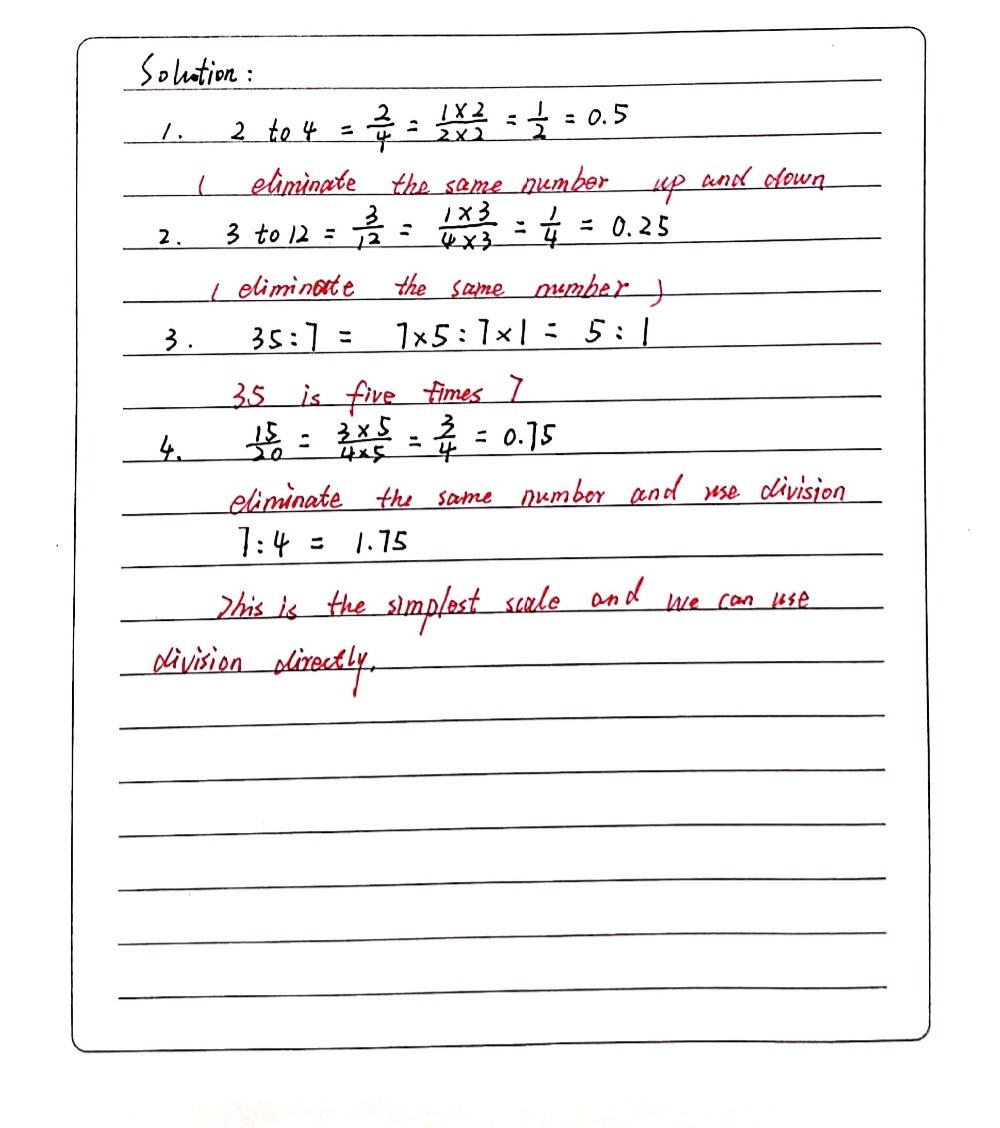 Solution:
1. 2 to 4 = 2/4 = 1×2/2×2 = 1/2 = 0.5
( eliminate the same number up and down
2. 3 to 12 = 3/12 = 1×3/4×3 = 1/4 = 0.25
( eliminate the same number )
3. 35:7 = 7×5:7×1 = 5:1
35 is five times 7
4. 15/20 = 3×5/4×5 = 3/4 = 0.75
eliminate the same number and use division
7:4 = 1.75
This is the simplest scale and we can use
division directly.